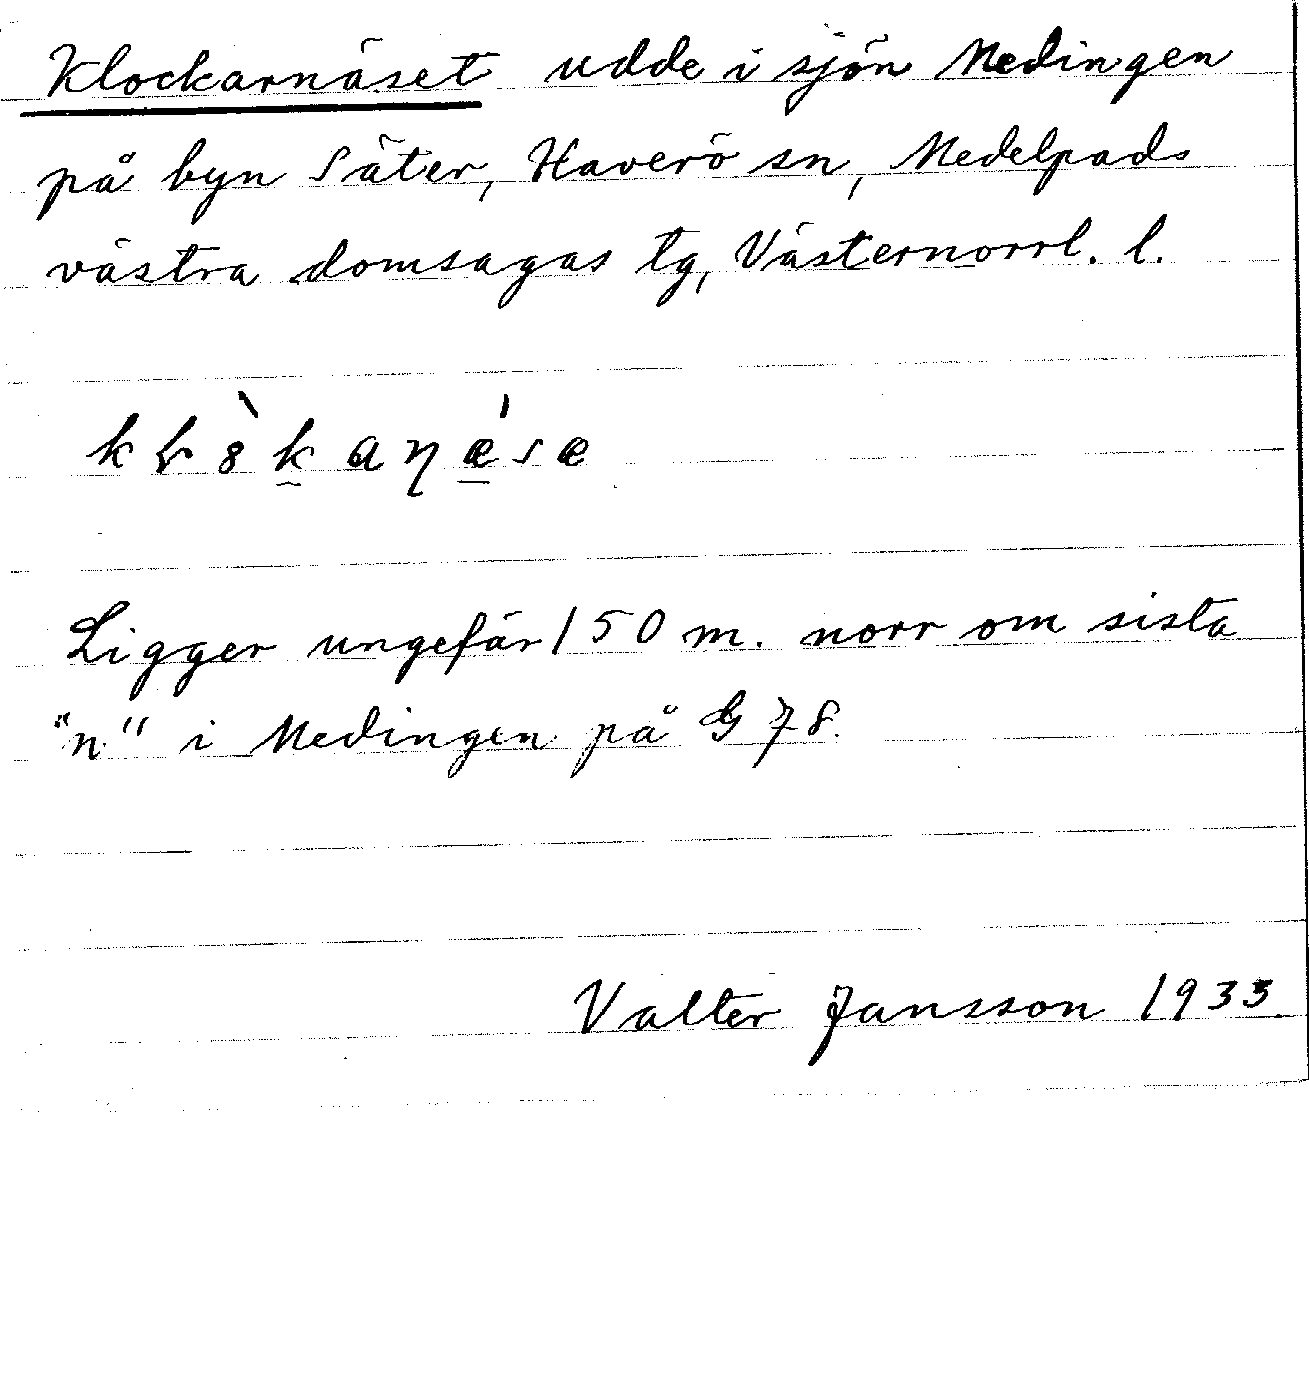 Klockarnäset udde i sjön Medingen
på byn Säter, Haverö sn, Medelpads
västra domsagas tg, Västernorrl. l.
Ligger ungefär 150 m. norr om sista
"n" i Medingen på G 78.
Valter Jansson 1933.